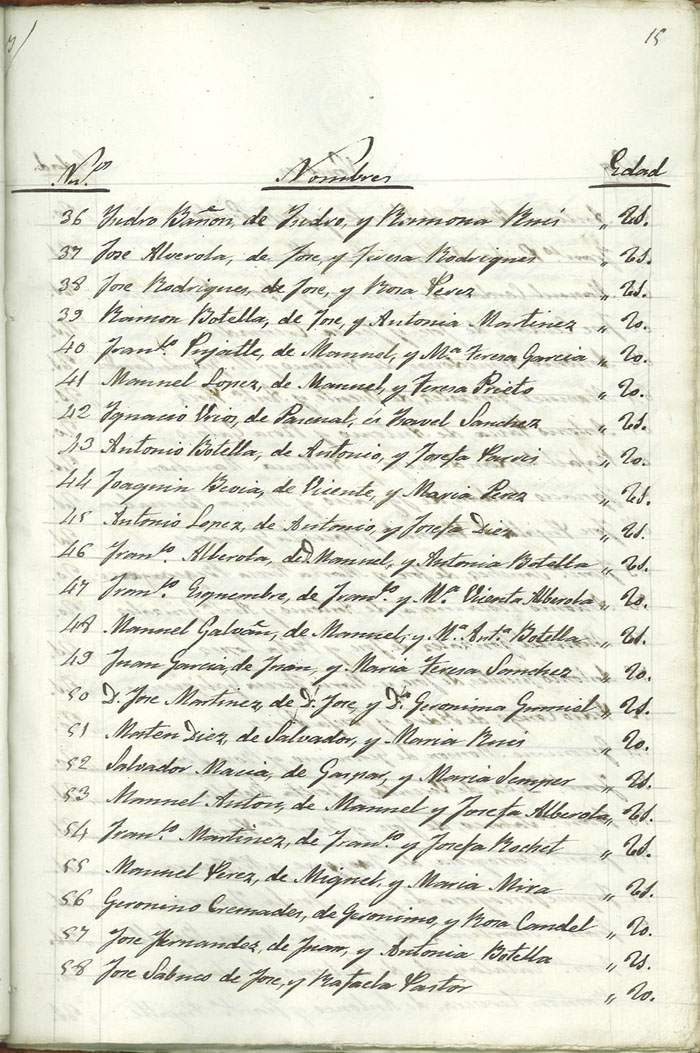 15
N.os Nombres Edad
36 Isidro Bañon, de Isidro, y Ramona Ruis „ 21.
37 Jose Alverola, de Jose, y Teresa Rodrigues „ 21.
38 Jose Rodrigues, de Jose, y Rosa Perez „ 21.
39 Ramon Botella, de Jose, y Antonia Martinez „ 20.
40 Fran.co Pujalte, de Manuel, y M.a Teresa Garcia „ 20.
41 Manuel Lopez, de Manuel, y Teresa Prieto „ 20.
42 Ignacio Urios, de Pascual, é Isavel Sanchez „ 21.
43 Antonio Botella, de Antonio, y Josefa „ 20.
44 Joaquin Bevia, de Vicente, y Maria Perez „ 21.
45 Antonio Lopez, de Antonio, y Josefa Diez „ 21.
46 Fran.co Alberola, de D Manuel, y Antonia Botella „ 21.
47 Fran.co Esquembre, de Fran.co y M.a Vicenta Alberola „ 20.
48 Manuel Galvañ, de Manuel, y M.a Ant.a Botella „ 21.
49 Juan Garcia, de Juan, y Maria Teresa Sanchez „ 20.
50 D. Jose Martinez, de D. Jose, y D.a Geronima „ 21.
51 Diez, de Salvador, y Maria Ruis „ 20.
52 Salvador Macia, de Gaspar, y Maria Semper „ 21.
53 Manuel Anton, de Manuel y Josefa Alberola „ 21.
54 Fran.co Martinez, de Fran.co y Josefa Rochel „ 21.
55 Manuel Perez, de Miguel, y Maria Mira „ 21.
56 Geronimo Cremades, de Geronimo, y Rosa Candel „ 20.
57 Jose Fernandez, de Juan, y Antonia Botella „ 21.
58 Jose Sabuco de Jose, y Rafaela Pastor „ 20.